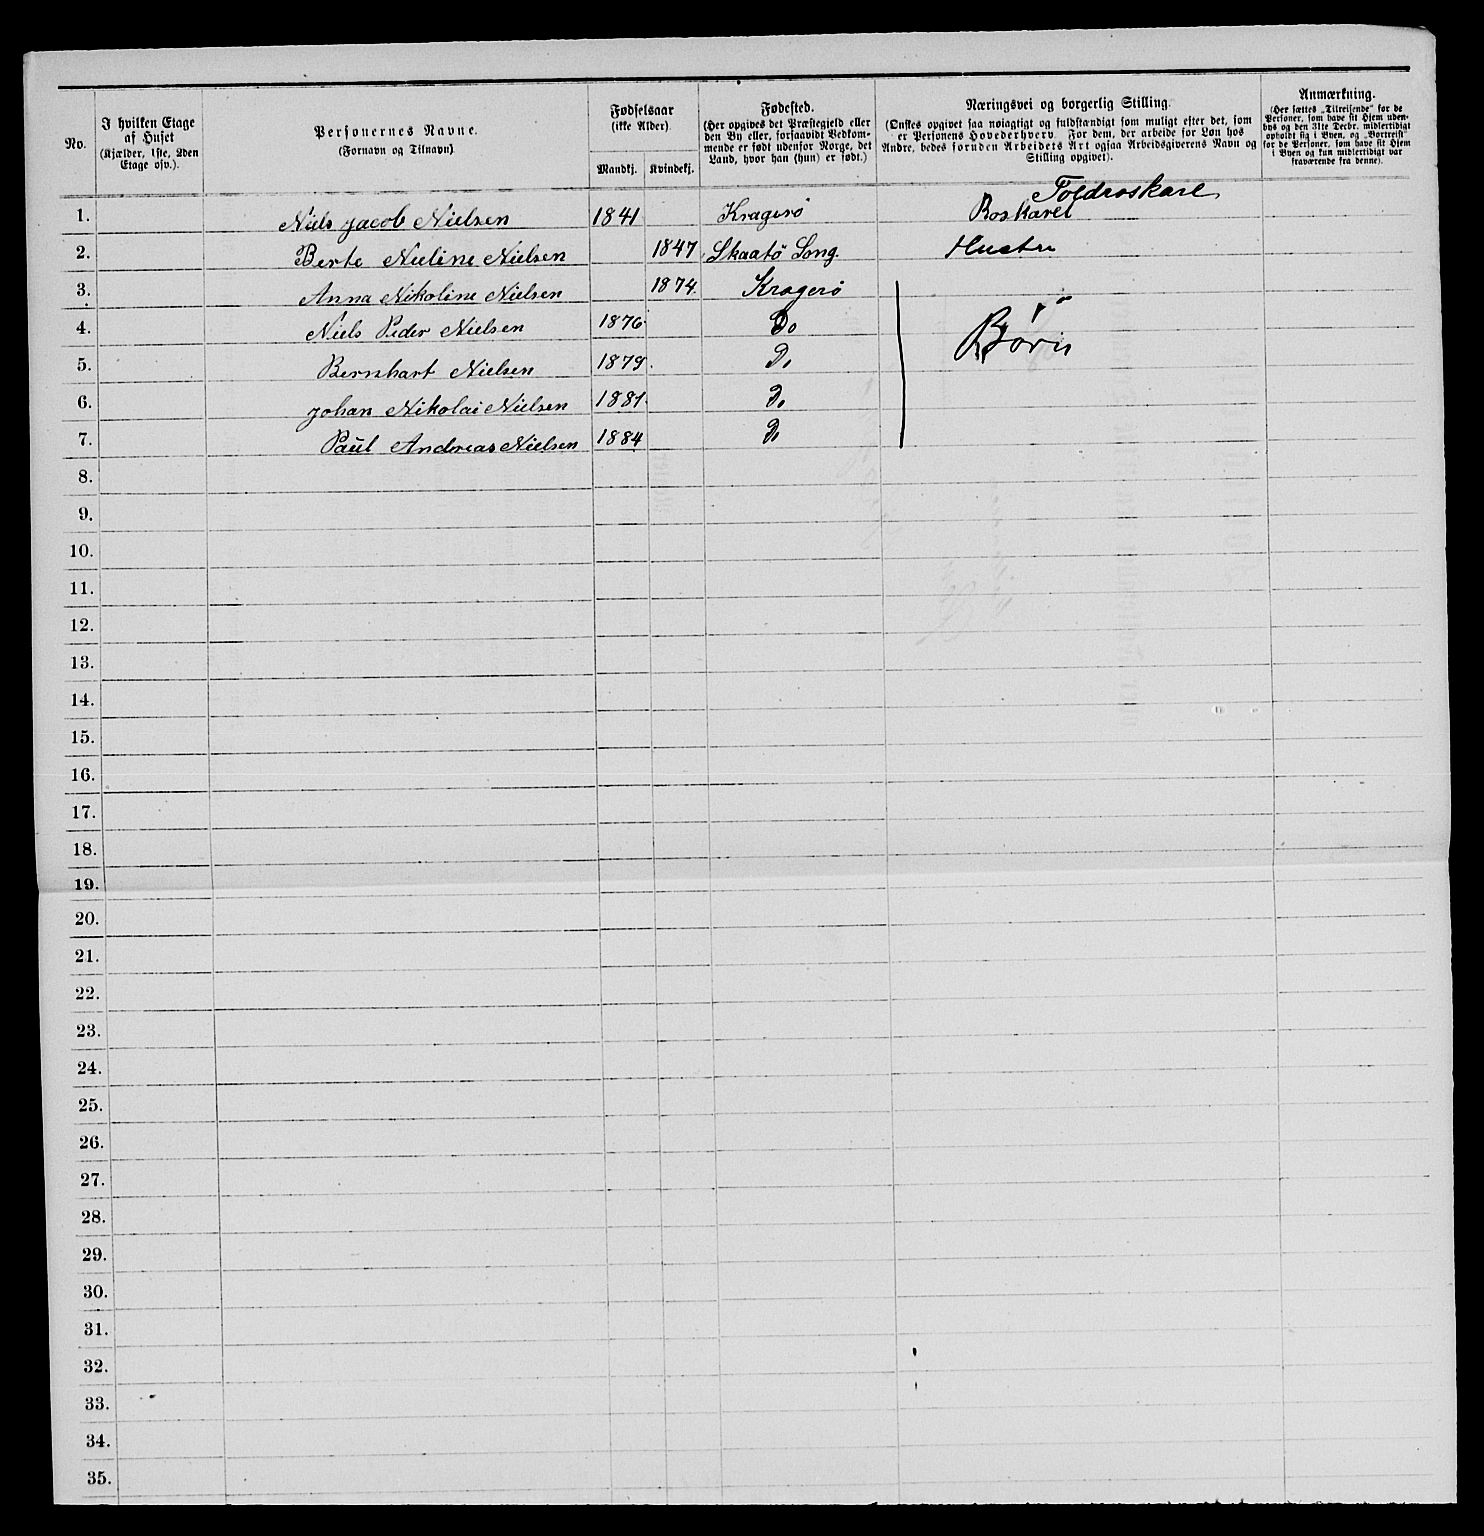 No.
I hvilken Etage
af Huset
(Kjælder, 1ste, 2den
Etage osv.).
Personernes Navne.
(Fornavn og Tilnavn).
Fødselsaar
(ikke Alder).
Mandkj.
Kvindekj.
Fødested.
(Her opgives det Præstegjeld eller
den By eller, forsaavidt Vedkom-
mende er født udenfor Norge, det
Land, hvor han (hun) er født.)
Næringsvei og borgerlig Stilling.
(Ønskes opgivet saa nøiagtigt og fuldstændigt som muligt efter det, som
er Personens Hovederhverv. For dem, der arbeide for Løn hos
Andre, bedes foruden Arbeidets Art ogsaa Arbeidsgiverens Navn og
Stilling opgivet).
Anmærkning.
(Her sættes „Tilreisende“ for de
Personer, som have sit Hjem uden-
bys og den 31te Decbr. midlertidigt
opholdt sig i Byen, og „Bortreist“
for de Personer, som have sit Hjem
i Byen og kun midlertidigt var
fraværende fra denne).
Toldroskarl
1. Niels Jacob Nielsen 1841 Kragerø Roskarel
2. Berte Nieline Nielsen 1847 Skaatö Song. Hustru
3. Anna Nikoline Nielsen 1874 Kragerö
4. Niels Peder Nielsen 1876 Do Børn
5. Bernhart Nielsen 1879 Do
6. Johan Nikolai Nielsen 1881 Do
7. Paul Andreas Nielsen 1884 Do
8.
9.
10.
11.
12.
13.
14.
15.
16.
17.
18.
19.
20.
21.
22.
23.
24.
25.
26.
27.
28.
29.
30.
31.
32.
33.
34.
35.